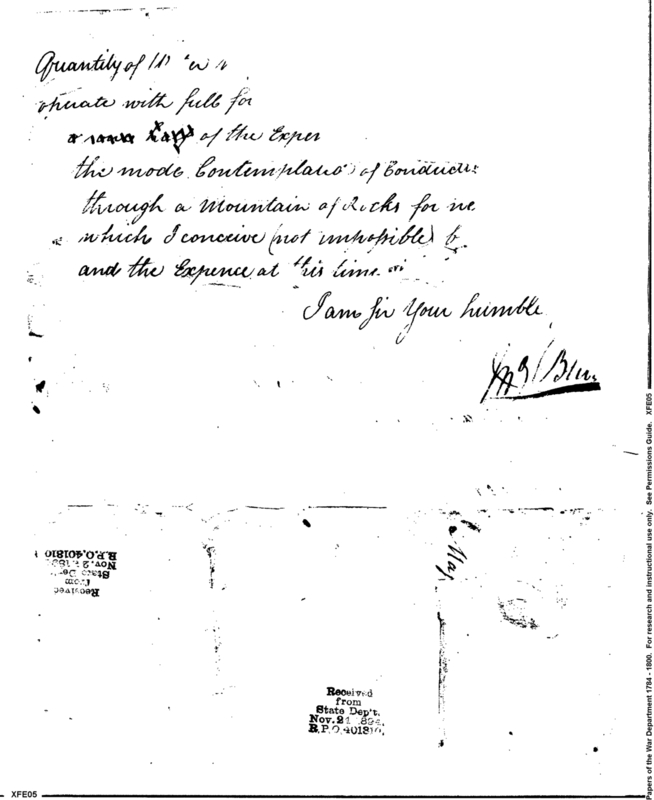 Quantity of
operate with full for
of the Exper
the mode Contemplated of Conduct
through a Mountain of Rocks for ne
which I conceive (not impossible) b
and the Expence at this time
I am Sir Your humble
Received
from
State Dep't.
Nov. 21 1894.
R.P.O. 401810.
Received
from
State Dep't.
Nov. 21 189
R.P.O. 401810
XFE05
Papers of the War Department 1784 - 1800. For research and instructional use only. See Permissions Guide. XFE05